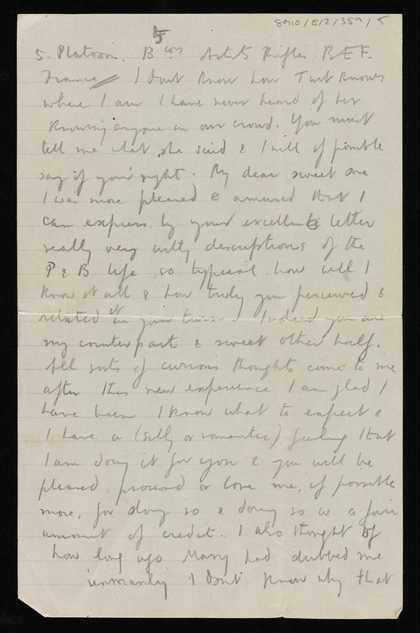 5
8910/5/2/359/5
5. Platoon. B Coy Artists Rifles B.E.F.
France I don't know how Twit knows
where I am I have never heard of her
knowing anyone in our crowd. You must
tell me what she said & I will if possible
say if you're right. My dear sweet one
I was more pleased & amused that I
can express by your excellent letter
really very witty descriptions of the
P & B life, so typical how well I
know it all & how truly you perceived &
related it in your Indeed you are
my counterpart & sweet other half.
All sorts of curious thoughts come to me
after this new experience I am glad I
have been I know what to expect &
I have a (silly or romantic) feeling that
I am doing it for you & you will be
pleased, proud or love me, if possible
more, for doing so & doing so w a fair
amount of credit. I also thought of
how long ago Mary had dubbed me
unmanly I don't know why that